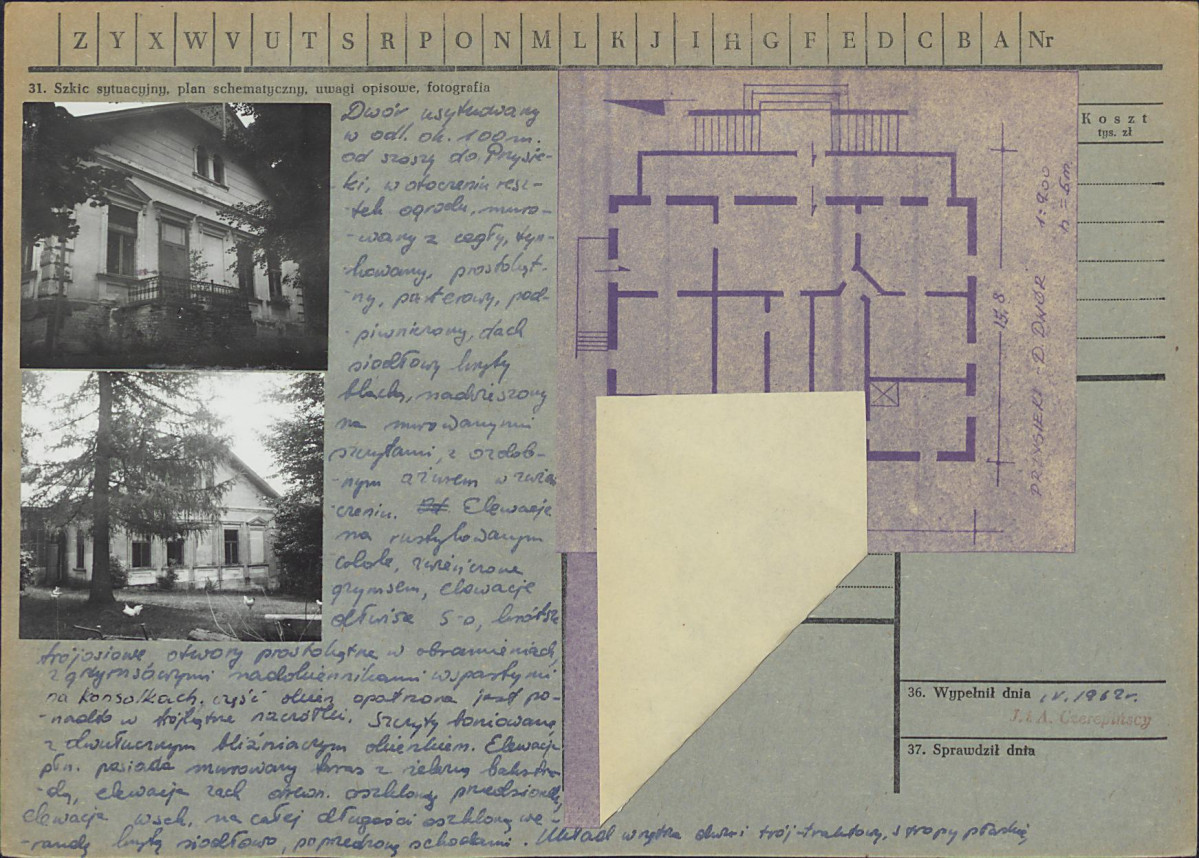 Z Y X W V U T S R P O N M L K J I H G F E D C B A Nr
31. Szkic sytuacyjny, plan schematyczny, uwagi opisowe, fotografia
Dwór usytuowany
w odl. ok. 100 m.
od szosy do Przysie-
ki, w otoczeniu resz-
-tek ogrodu, muro-
-wany z cegły, tyn-
-kowany, prostokąt-
-ny, parterowy, pod-
-piwniczony, dach
siodłowy kryty
blachą, nadwieszony
na murowanymi
szczytami, z ozdob-
-nym ażurem w zwień
czeniu. Elewacje
na rustykowanym
cokole, zwieńczone
gzymsem, elewacje
dłuższe 5-o, krótsze
trójosiowe otwory prostokątne w obramieniach,
z gzymsowymi nadokiennikami wspartymi
na konsolkach, część okien opatrzona jest po-
-nadto w trójkątne naczółki. Szczyty boniowane
z dwułucznym bliźniaczym okienkiem. Elewacja
płn. posiada murowany taras z żelazną balustra-
-dą, elewacja zach drewn. oszklony przedsionek,
elewacja wsch. na całej długości oszkloną we-
-randę krytą siodłowo, poprzedzoną schodami. Układ wnętrza dwu i trój-traktowy, stropy płaskie
PRZYSIEKI - D. DWÓR 1:200
h = 5m.
15,8
Koszt
tys. zł
36. Wypełnił dnia IV. 1962r.
J. i A. Czerepińscy
37. Sprawdził dnia